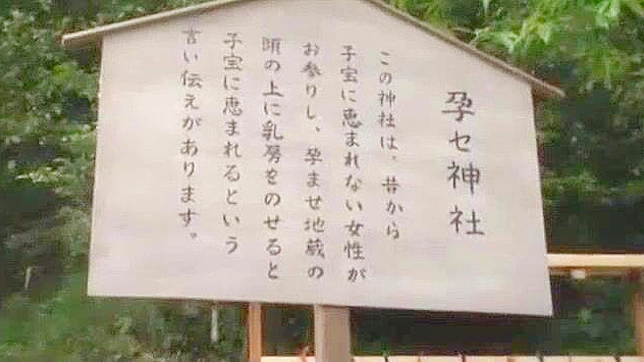 孕セ神社
この神社は、昔から
子宝に恵まれない女性が
お参りし、孕ませ地蔵の
頭の上に乳房をのせると
子宝に恵まれるという
言い伝えがあります。